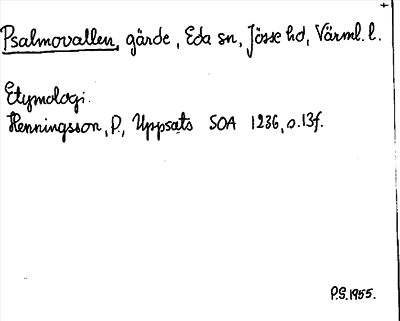 Psalmovallen, gärde, Eda sn, Jösse hd, Värml. l.
Etymologi.
Henningsson, P., Uppsats SOA 1236, s. 13f.
P.S. 1955.